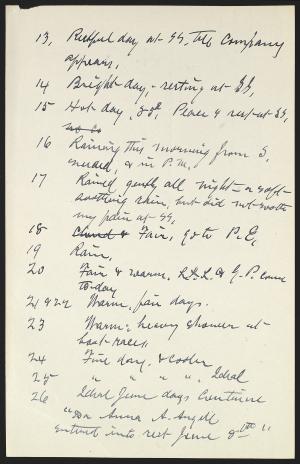 13, Restful day at SS, the Company
appears,
14 Bright day, - resting at SS,
15 Hot day, Peace & rest at SS,
16 Raining this morning from S,
& in P.M.
17 Rained gently all night - a soft
soothing rain, but did not soothe
my pain at SS,
18 & Fair, go to P.E,
19 Rain,
20 Fair & warm. & G.P come
to-day
21 & 22 Warm, fair days.
23 Warm, heavy shower at
boat-races
24 Fine day, & cooler
25 " " " ". Ideal
26 Ideal June days Continue
"Dea Anna A. Angell
entered into rest June 8th"